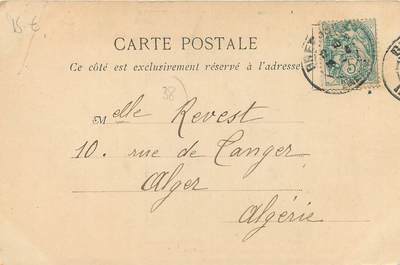 15 €
CARTE POSTALE
Ce côté est exclusivement réservé à l'adresse
38
Melle Revest
10. rue de Tanger
Alger
Algérie